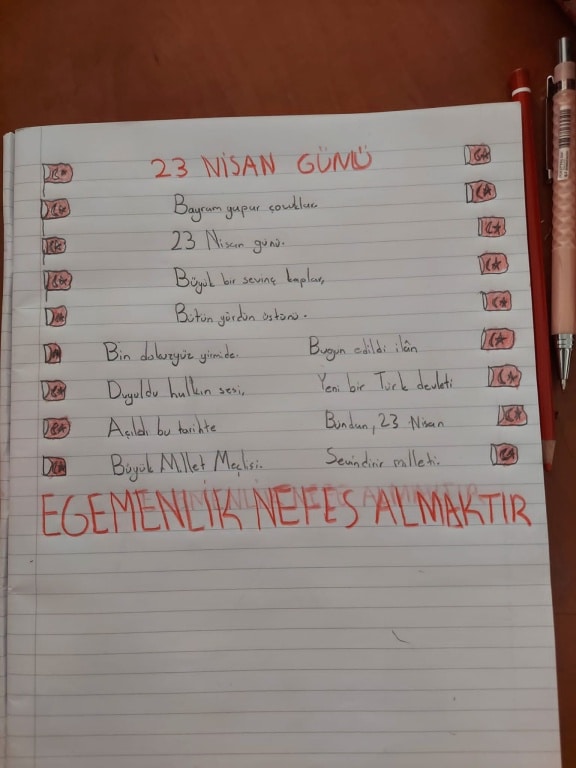 23 NİSAN GÜNÜ
Bayram yapar çocuklar
23 Nisan günü.
Büyük bir sevinç kaplar,
Bütün yurdun üstünü.
Bin dokuzyüz yirmide.
Duyuldu halkın sesi,
Açıldı bu tarihte
Büyük Millet Meclisi.
Bugün edildi ilân
Yeni bir Türk devleti
Bundan, 23 Nisan
Sevindirir milleti.
EGEMENLİK NEFES ALMAKTIR